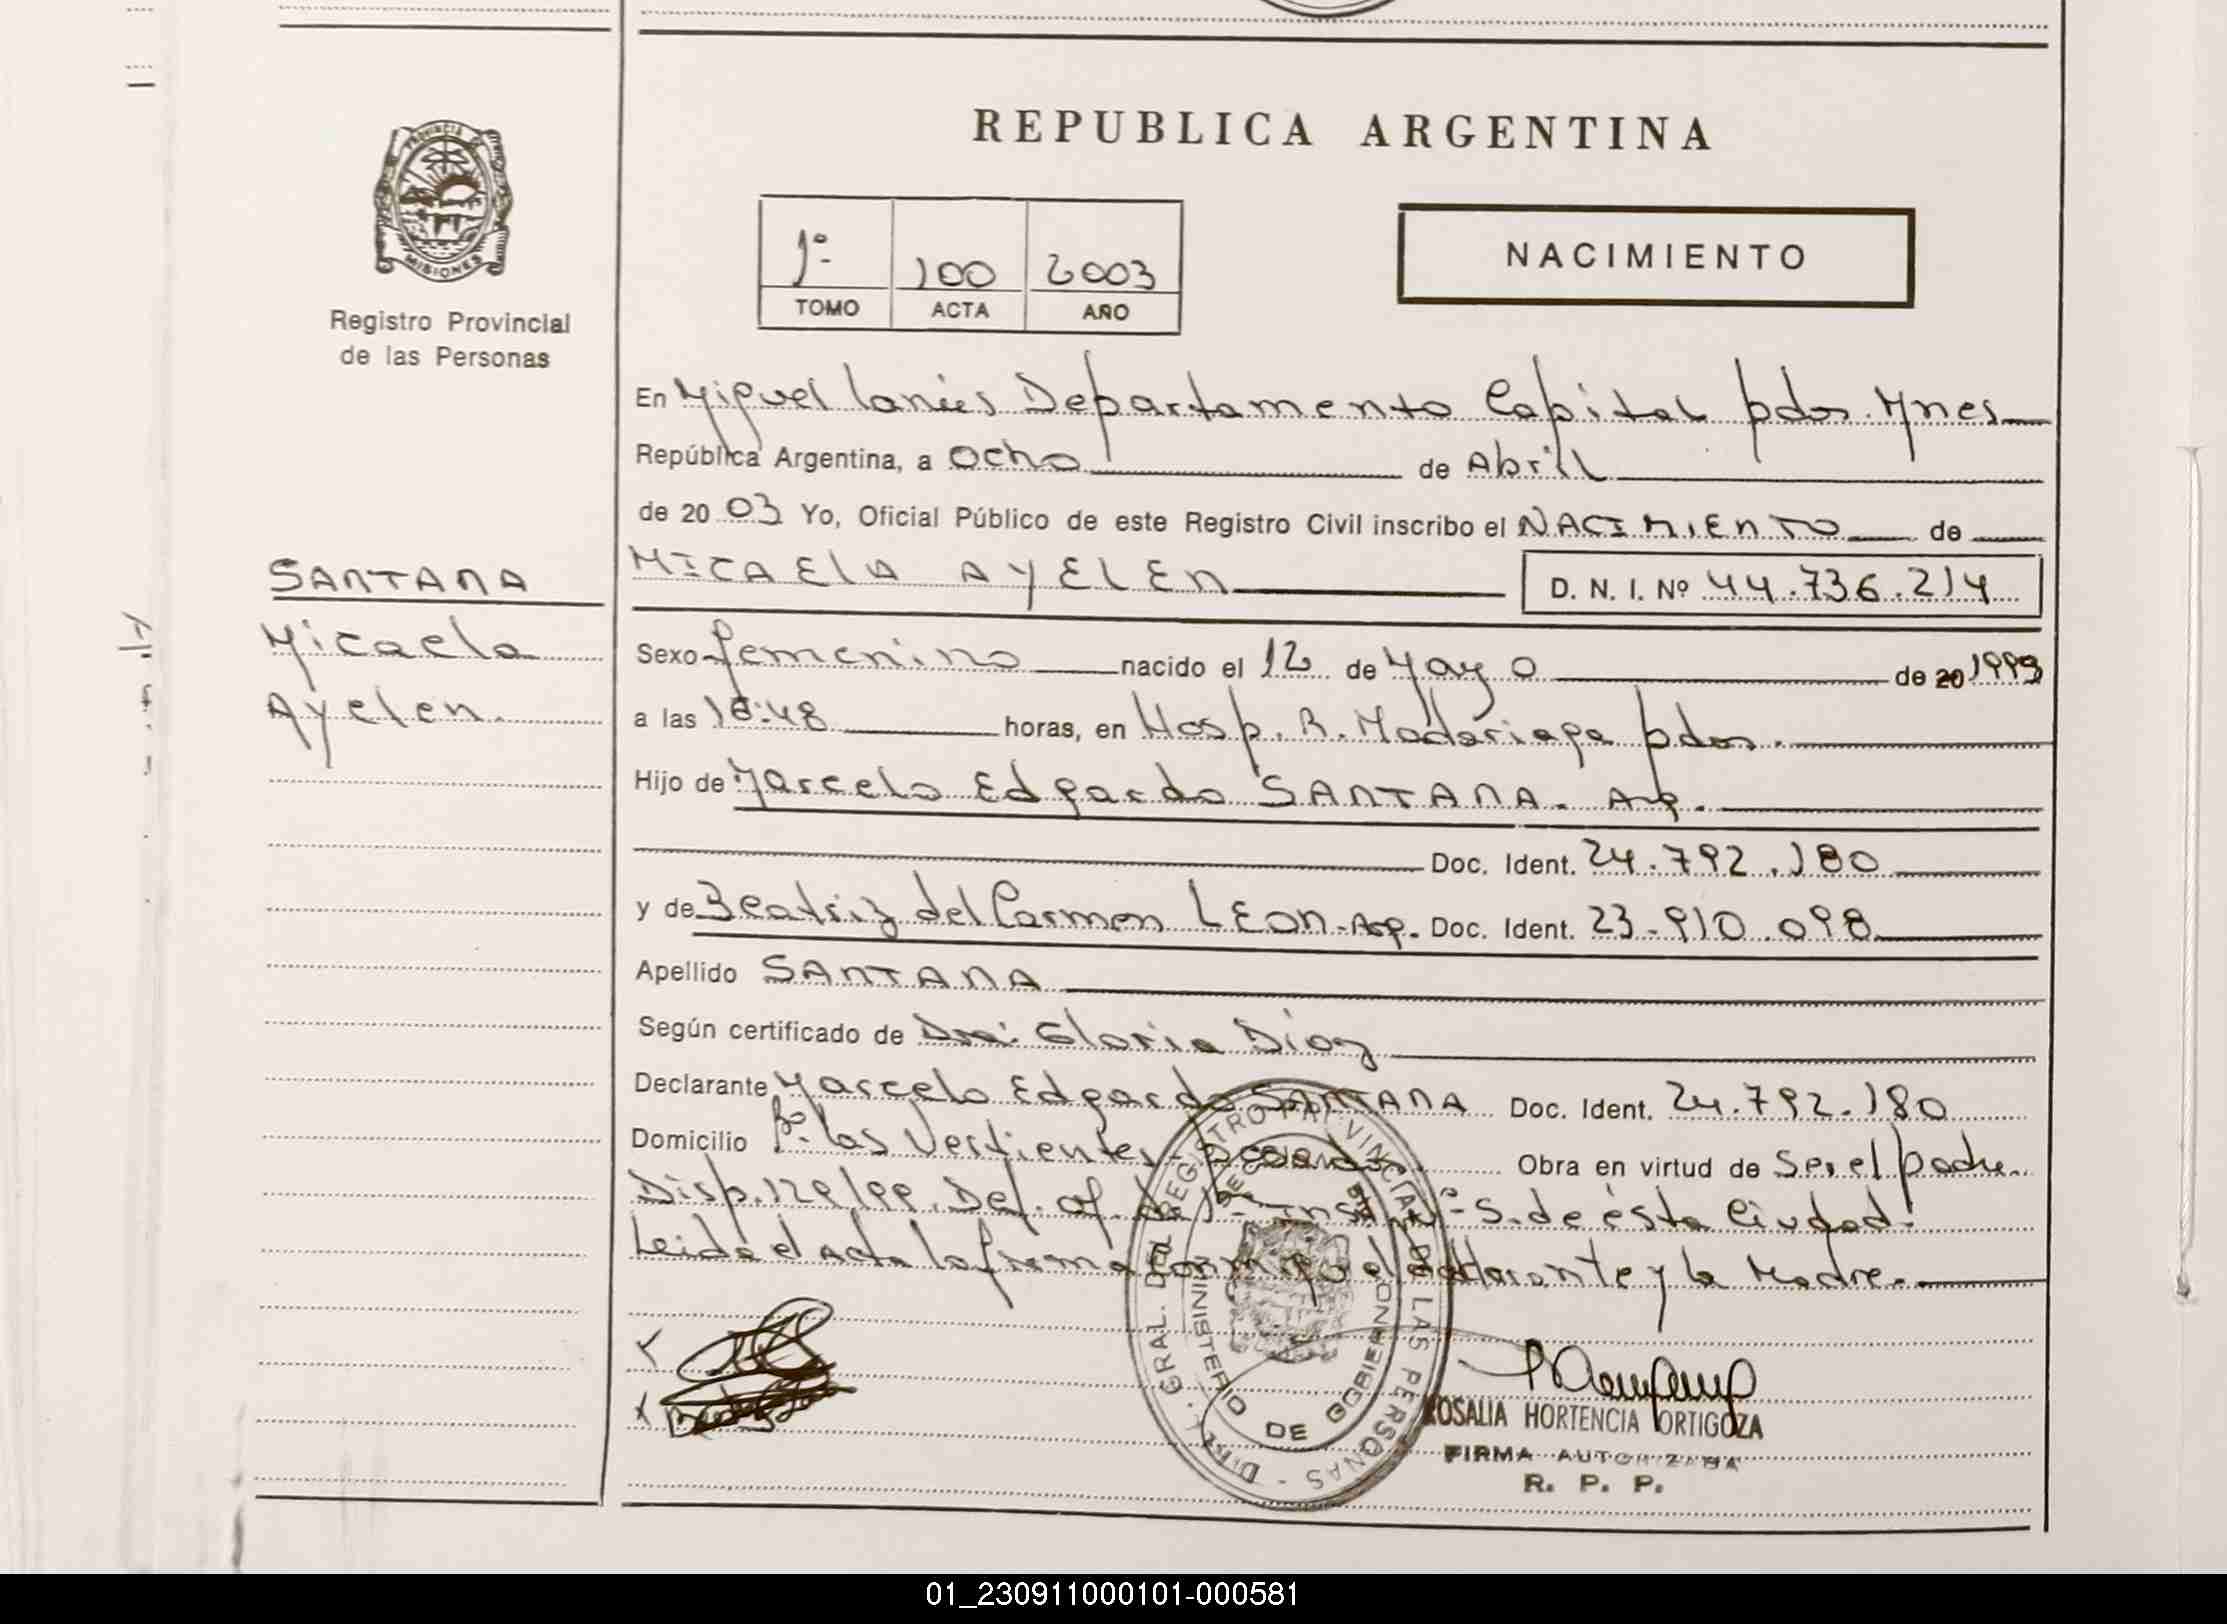 REPUBLICA ARGENTINA
PROVINCIA DE MISIONES
Registro Provincial
de las Personas
1º 100 2003
TOMO ACTA AÑO
NACIMIENTO
En Miguel Lanús Departamento Capital pdas. Mnes
República Argentina, a Ocho de Abril
de 20 03 Yo, Oficial Público de este Registro Civil inscribo el NACIMIENTO de
MICAELA AYELEN D. N. I. Nº 44.736.214
SANTANA
Micaela
Ayelen.
Sexo femenino nacido el 12 de Mayo de 20 1999
a las 18:48 horas, en Hosp. R. Madariaga pdas.
Hijo de Marcelo Edgardo SANTANA. Arg.
Doc. Ident. 24.792.180
y de Beatriz del Carmen LEON-Arg. Doc. Ident. 23.910.098
Apellido SANTANA
Según certificado de Dra: Gloria Diaz
Declarante Marcelo Edgardo SANTANA Doc. Ident. 24.792.180
Domicilio Bº. las Vertientes- Obra en virtud de Ser el padre
Disp. 129/99. Def. of. de 1º Inst. S. de ésta Ciudad.
Leida el Acta la firma conmigo el declarante y la Madre.
DIR. GRAL. DEL REGISTRO PROVINCIAL DE LAS PERSONAS
MINISTERIO DE GOBIERNO
ROSALIA HORTENCIA ORTIGOZA
FIRMA AUTORIZADA
R. P. P.
01_230911000101-000581